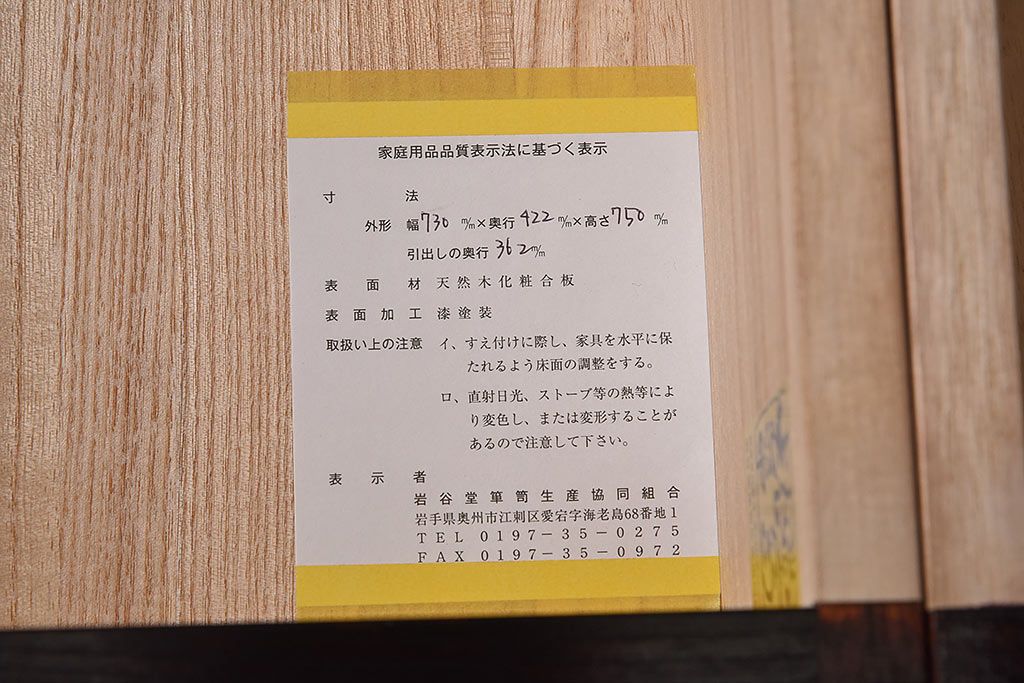 家庭用品品質表示法に基づく表示
寸法
外形 幅730㎜×奥行422㎜×高さ750㎜
引出しの奥行362㎜
表面材 天然木化粧合板
表面加工 漆塗装
取扱い上の注意 イ、すえ付けに際し、家具を水平に保
たれるよう床面の調整をする。
ロ、直射日光、ストーブ等の熱等によ
り変色し、または変形することが
あるので注意して下さい。
表示者
岩谷堂箪笥生産協同組合
岩手県奥州市江刺区愛宕字海老島68番地1
TEL 0197-35-0275
FAX 0197-35-0972